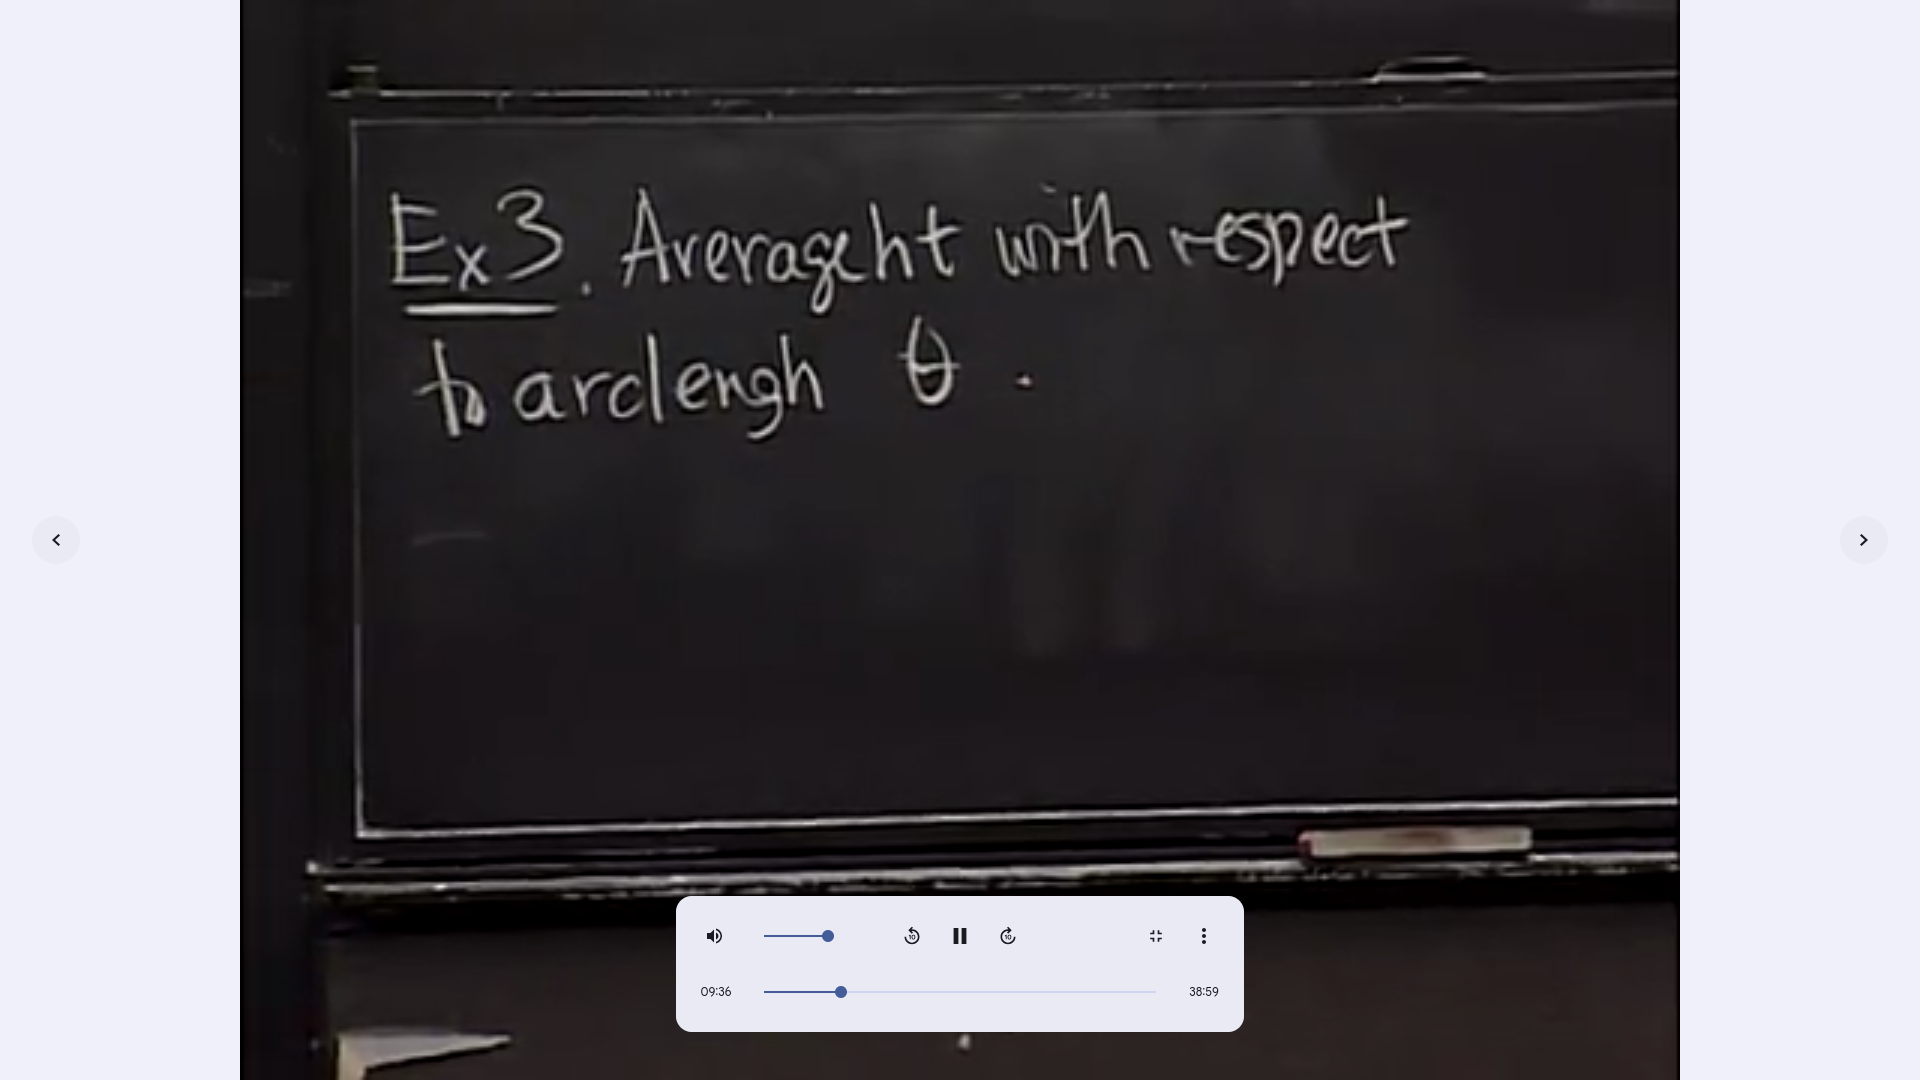 Ex 3. Average ht with respect
to arclengh θ.
09:36
38:59